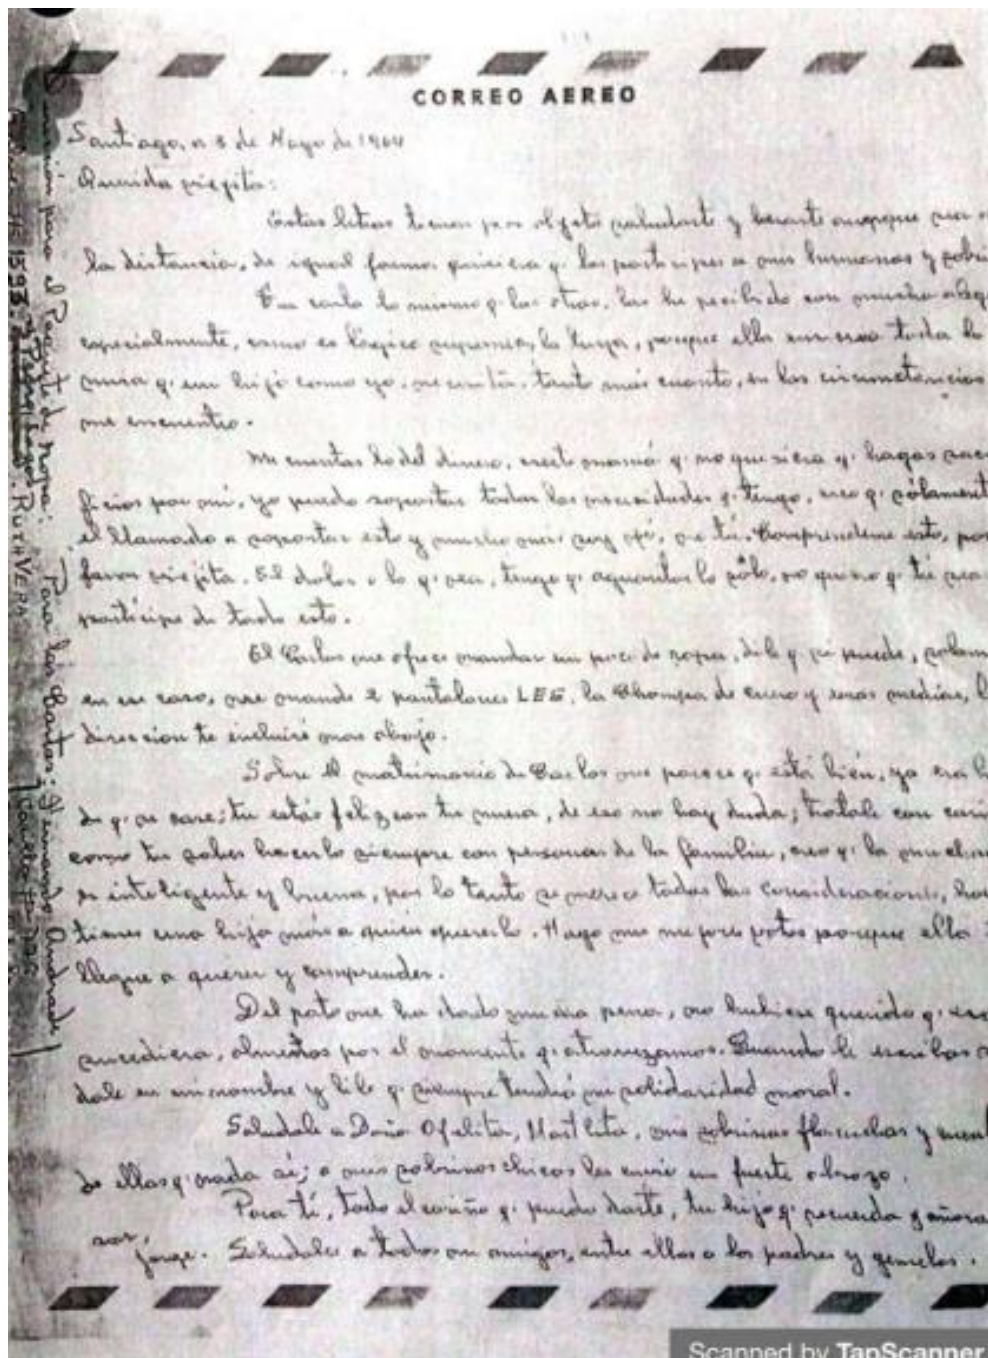 CORREO AEREO
Santiago, a 8 de Mayo de 1964
Querida viejita:
Estas letras tienen por objeto saludarte y besarte aunque sea a
la distancia, de igual forma quisiera q. los participes a mis hermanas y sobri
Tu carta lo mismo q. las otras, las he recibido con mucha aleg
especialmente, como es lógico suponer, la tuya, porque ella
q. un hijo como yo, necesita, tanto más cuanto, en las circunstancias
me encuentro.
Me cuentas lo del dinero, mamá q. no quisiera q. hagas sacri
ficios por mí, yo puedo soportar todas las necesidades q. tengo, creo q. sólament
el llamado a soportar esto y mucho más soy yó, no tú. Comprendeme esto, por
favor viejita. El dolor o lo q. sea, tengo q. aguantarlo sólo, no quiero q. tú seas
partícipe de todo esto.
El Carlos me ofrece mandar un poco de ropa, dile q si puede, solam
en ese caso, me mande 2 pantalones LEE, la Chompa de cuero y unas medias, l
dirección te incluiré mas abajo.
Sobre el matrimonio de Carlos me parece q. está bién, ya era h
de q. se case; tu estás feliz con tu nuera, de eso no hay duda; tratale con cari
como tu sabes hacerlo siempre con personas de la familia, creo q. la
es inteligente y buena, por lo tanto se merece todas las consideraciones,
tienes una hija más a quién quererla. Hago mis mejores votos porque ella
llegue a querer y comprender.
Del pato me ha dado mucha pena, no hubiese querido q.
sucediera, por el momento q. atravezamos. Cuando le escribas
dale en mi nombre y dile q. siempre tendrá mi solidaridad moral.
Saludale a Doña Ofelita, mis sobrinas flacuchas y
de ellas q. nada sé; a mis sobrinos chicos les envío un fuerte abrazo.
Para tí, todo el cariño q. puedo darte, tu hijo q. recuerda y añora
Jorge. Saludales a todos mis amigos, entre ellos a los padres y gemelos.
Dirección para el Paquete de Ropa: Para las Cartas: Fernando Andrade
RUTH VERA
Scanned by TapScanner